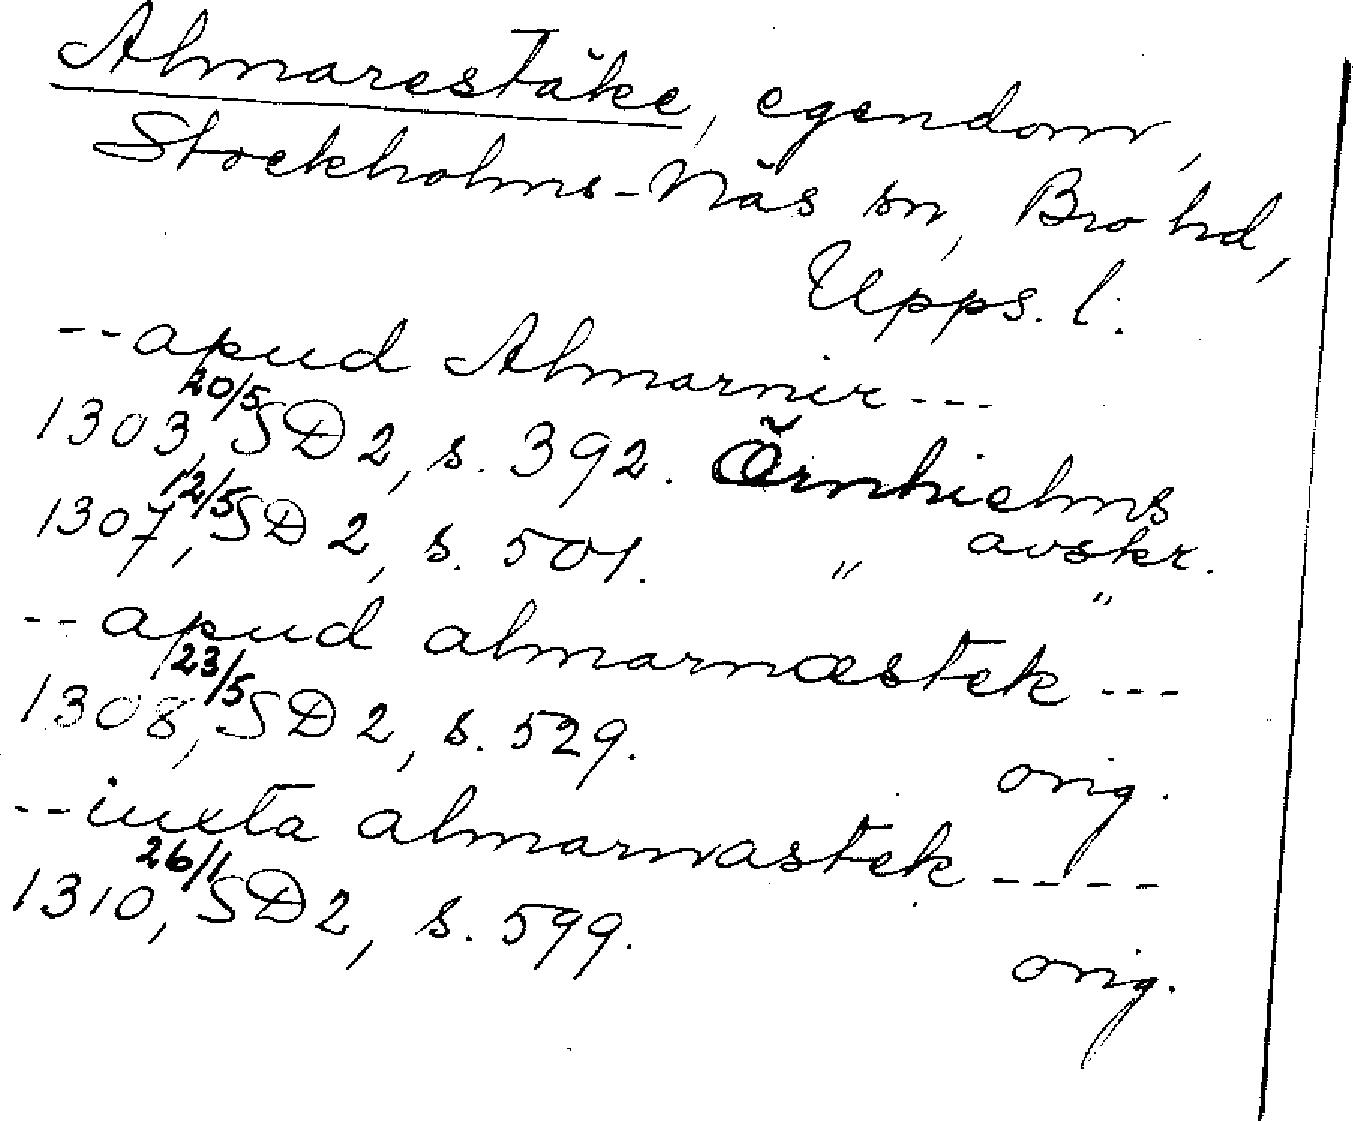 Almarestäke, egendom,
Stockholms-Näs sn, Bro hd,
Upps. l.
--apud Almarnir---
1303 20/5, SD 2, s. 392. Örnhielms
avskr.
1307 12/5, SD 2, s. 501. " "
--apud almarnæstek---
1308 23/5, SD 2, s. 529. orig.
--iuxta almarnastek----
1310 26/1, SD 2, s. 599. orig.